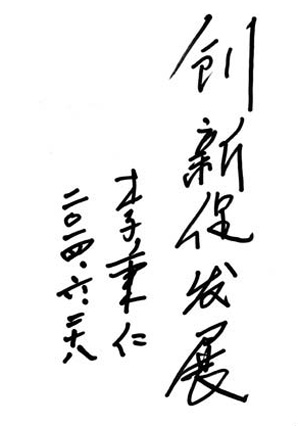 创新促发展
李秉仁
二〇一四·六·二十八